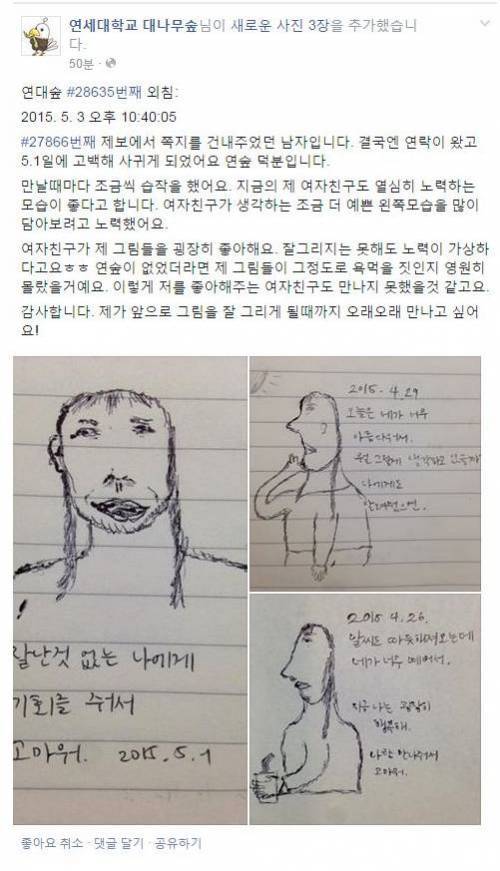 연세대학교 대나무숲님이 새로운 사진 3장을 추가했습니
다.
50분 ·
연대숲 #28635번째 외침:
2015. 5. 3 오후 10:40:05
#27866번째 제보에서 쪽지를 건내주었던 남자입니다. 결국엔 연락이 왔고
5.1일에 고백해 사귀게 되었어요 연숲 덕분입니다.
만날때마다 조금씩 습작을 했어요. 지금의 제 여자친구도 열심히 노력하는
모습이 좋다고 합니다. 여자친구가 생각하는 조금 더 예쁜 왼쪽모습을 많이
담아보려고 노력했어요.
여자친구가 제 그림들을 굉장히 좋아해요. 잘그리지는 못해도 노력이 가상하
다고요ㅎㅎ 연숲이 없었더라면 제 그림들이 그정도로 욕먹을 짓인지 영원히
몰랐을거예요. 이렇게 저를 좋아해주는 여자친구도 만나지 못했을것 같고요.
감사합니다. 제가 앞으로 그림을 잘 그리게 될때까지 오래오래 만나고 싶어
요!
잘난것 없는 나에게
기회를 줘서
고마워. 2015.5.1
2015. 4.29
오늘은 네가 너무
아름다워서.
나에게도
2015 4.26.
날씨도 따뜻해져오는데
네가 너무 예뻐서.
지금 나는 굉장히
행복해.
나를 만나줘서
고마워.
좋아요 취소 · 댓글 달기 · 공유하기